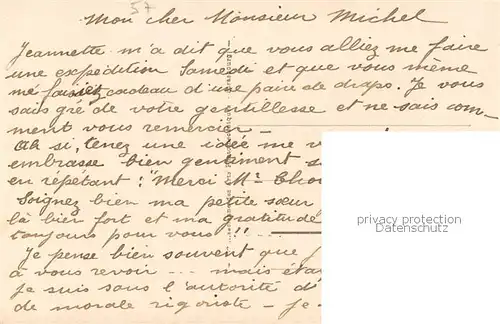 57
Mon cher Monsieur Michel
Jeannette m'a dit que vous alliez me faire
une expédition Samedi et que vous même
me faisiez cadeau d'une paire de draps. Je vous
sais gré de votre gentillesse et ne sais com-
ment vous remercier -
Ah si, tenez une idée me v
embrasse bien gentiment s
en répétant : "Merci Mr
Soignez bien ma petite sœur
là bien fort et ma gratitude
toujours pour vous !! -
Je pense bien souvent que
à vous revoir ... mais étan
je suis sous l'autorité d'
de morale rigoriste - je
privacy protection
Datenschutz